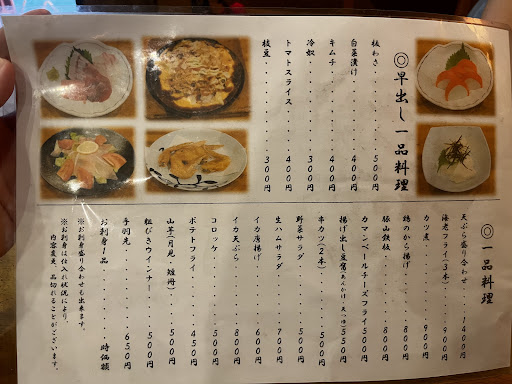 ◎早出し一品料理
板わさ・・・・・・・500円
白菜漬け・・・・・・400円
キムチ・・・・・・・400円
冷奴・・・・・・・・300円
トマトスライス・・・400円
枝豆・・・・・・・・300円
◎一品料理
天ぷら盛り合わせ・・1400円
海老フライ(3本)・・900円
カツ煮・・・・・・・900円
鶏のから揚げ・・・・800円
豚山鉄板・・・・・・800円
カマンベールチーズフライ500円
揚げ出し豆腐(あんかけ・天つゆ)550円
串カツ(2本)・・・・500円
野菜サラダ・・・・・500円
生ハムサラダ・・・・700円
イカ唐揚げ・・・・・600円
イカ天ぷら・・・・・800円
コロッケ・・・・・・500円
ポテトフライ・・・・450円
山芋(月見・短冊)・・500円
粗びきウインナー・・500円
手羽先・・・・・・・650円
お刺身1品・・・・・時価額
※お刺身盛り合わせも出来ます。
※お刺身は仕入れ状況により、
内容変更、品切れることがございます。